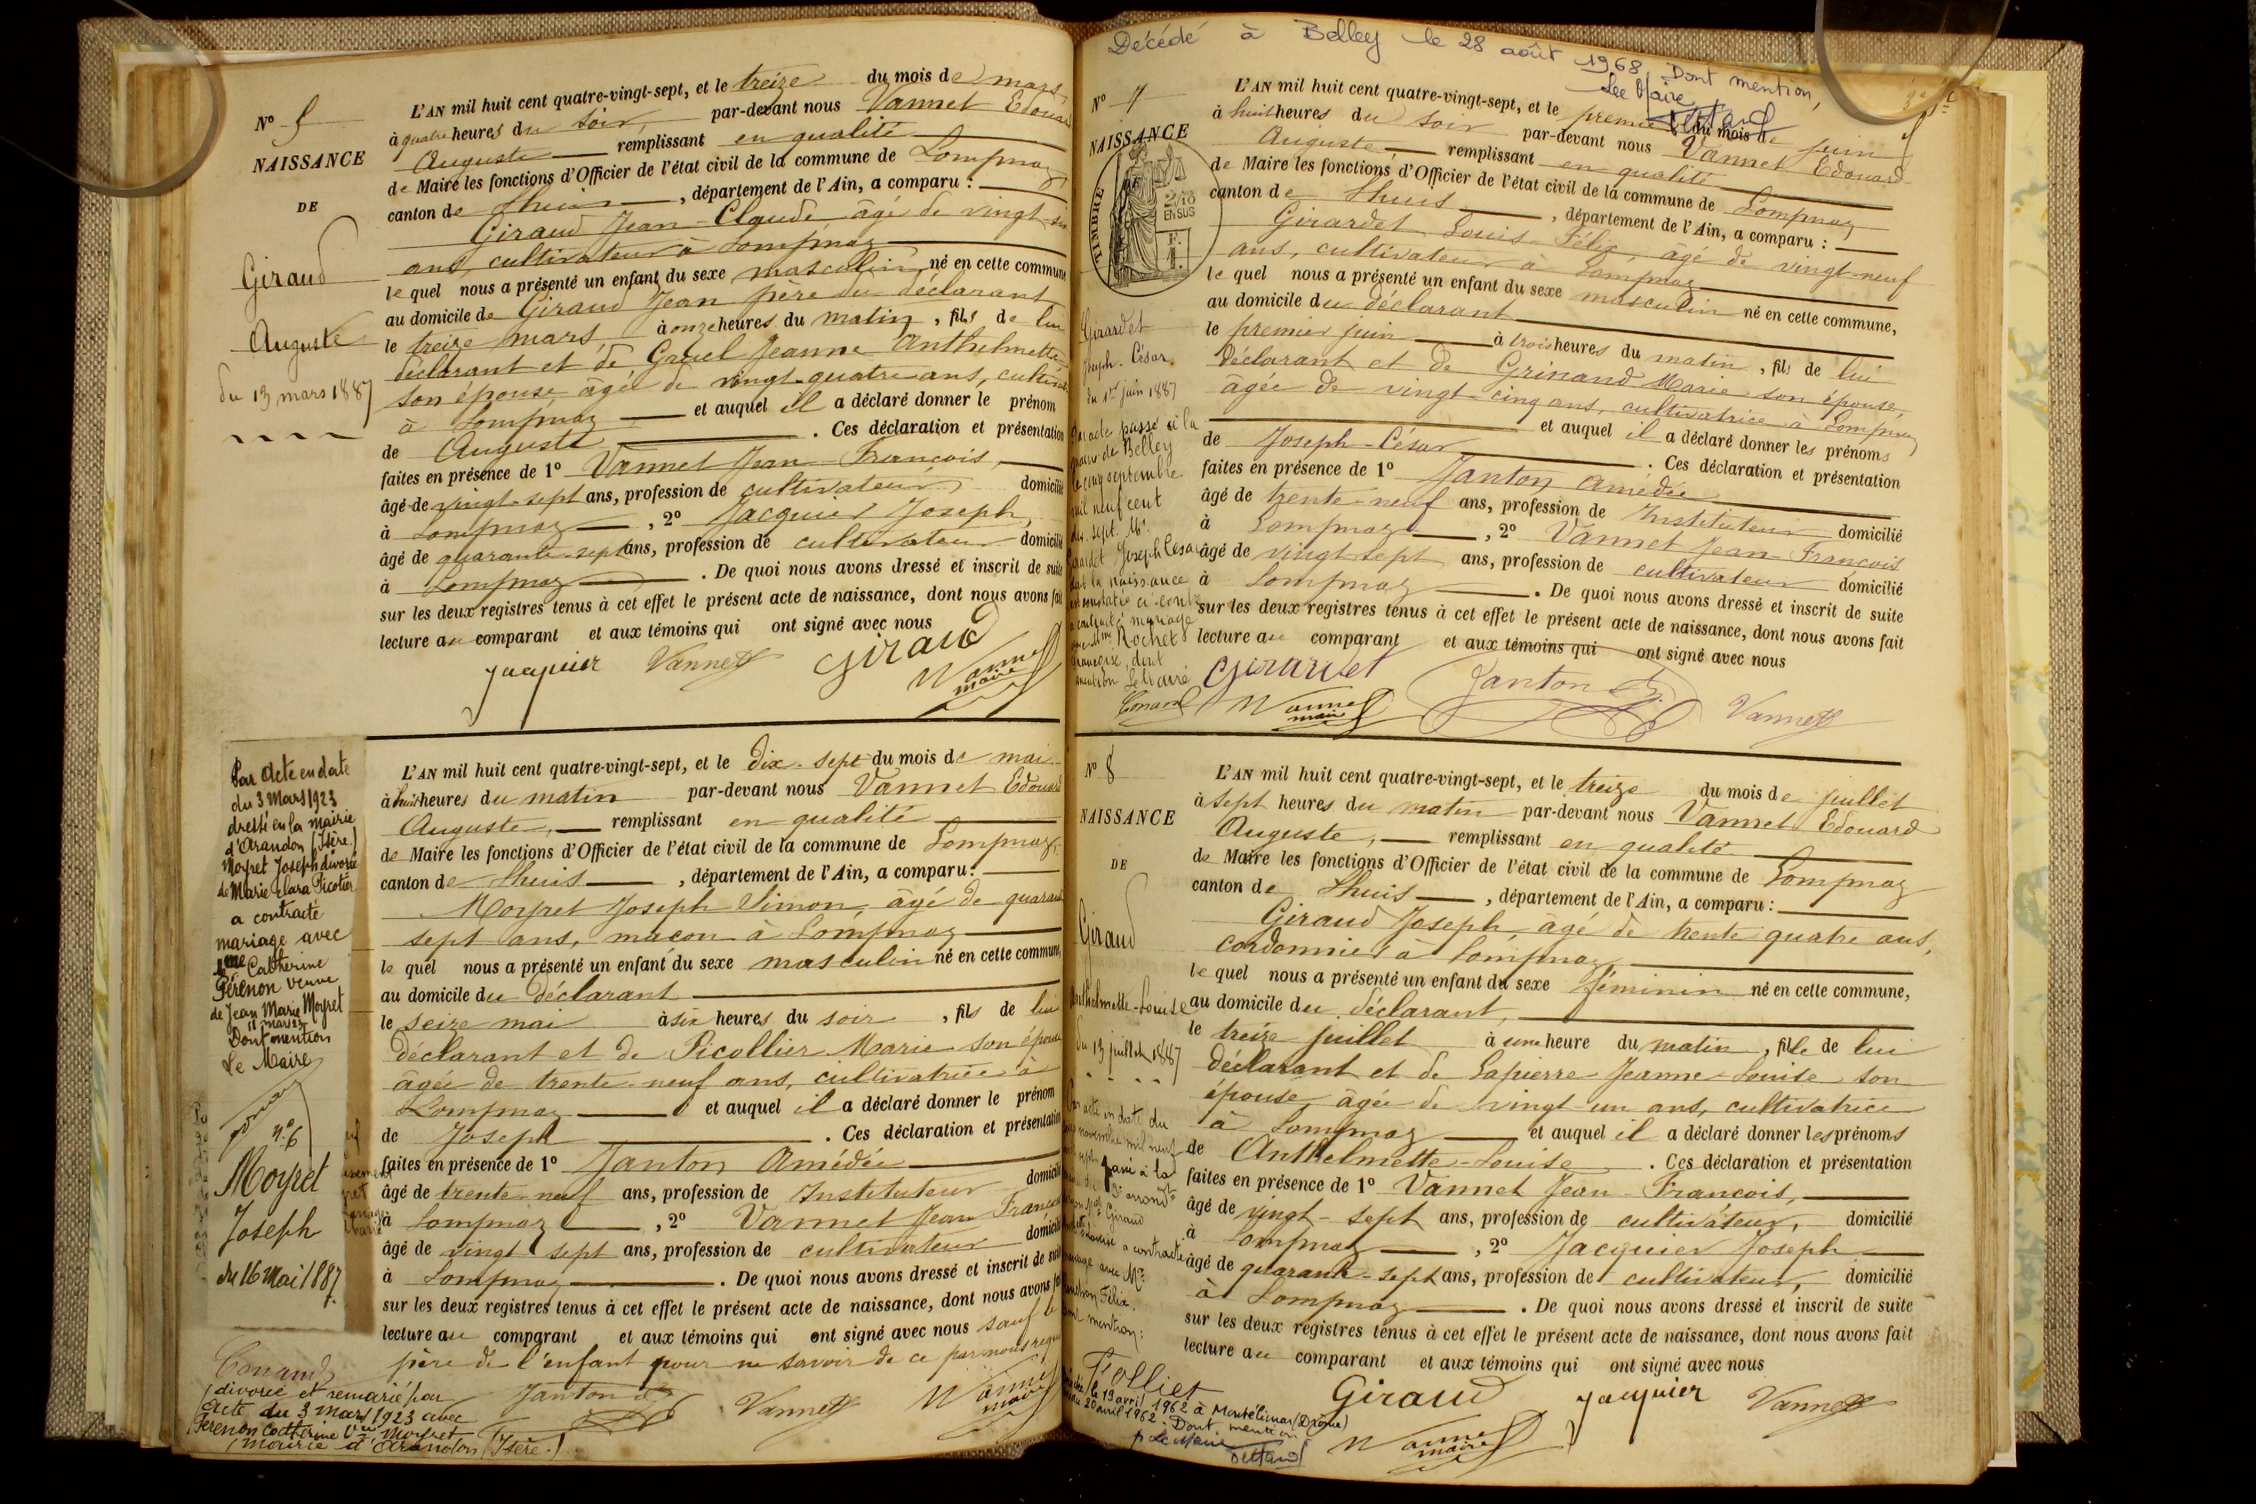 N° 5
NAISSANCE
DE
Giraud
Auguste
du 13 mars 1887
L'AN mil huit cent quatre-vingt-sept, et le treize du mois de mars
à quatre heures du soir, par-devant nous Vannet Edouard
Auguste remplissant en qualité
de Maire les fonctions d'Officier de l'état civil de la commune de Lompnaz
canton de Lhuis, département de l'Ain, a comparu :
Giraud Jean-Claude âgé de vingt-six
ans, cultivateur à Lompnaz
le quel nous a présenté un enfant du sexe masculin né en cette commune
au domicile de Giraud Jean père du déclarant
le treize mars à onze heures du matin, fils de lui
déclarant et de Gruel Jeanne Anthelmette
son épouse âgée de vingt-quatre ans,
à Lompnaz et auquel il a déclaré donner le prénom
de Auguste. Ces déclaration et présentation
faites en présence de 1° Vannet Jean-François,
âgé de vingt-sept ans, profession de cultivateur, domicilié
à Lompnaz, 2° Jacquier Joseph,
âgé de quarante-sept ans, profession de cultivateur domicilié
à Lompnaz. De quoi nous avons dressé et inscrit de suite
sur les deux registres tenus à cet effet le présent acte de naissance, dont nous avons fait
lecture au comparant et aux témoins qui ont signé avec nous
Jacquier Vannet Giraud
Vannet
maire
Par Acte en date
du 3 Mars 1923
dressé en la mairie
d'Arandon (Isère)
Moyret Joseph divorcé
de Marie Clara Picotier
a contracté
mariage avec
Mme Catherine
Férenon veuve
de Jean Marie Moyret
Dont mention
Le Maire
N° 6
Moyret
Joseph
du 16 Mai 1887.
L'AN mil huit cent quatre-vingt-sept, et le dix-sept du mois de mai
à huit heures du matin par-devant nous Vannet Edouard
Auguste, remplissant en qualité
de Maire les fonctions d'Officier de l'état civil de la commune de Lompnaz,
canton de Lhuis, département de l'Ain, a comparu :
Moyret Joseph Simon, âgé de quarante
sept ans, maçon à Lompnaz
le quel nous a présenté un enfant du sexe masculin né en cette commune,
au domicile du déclarant
le seize mai à six heures du soir, fils de lui
déclarant et de Picollier Marie son épouse
âgée de trente-neuf ans, cultivatrice à
Lompnaz et auquel il a déclaré donner le prénom
de Joseph. Ces déclaration et présentation
faites en présence de 1° Janton Amédée
âgé de trente-neuf ans, profession de Instituteur domicilié
à Lompnaz, 2° Vannet Jean François
âgé de vingt-sept ans, profession de cultivateur domicilié
à Lompnaz. De quoi nous avons dressé et inscrit de suite
sur les deux registres tenus à cet effet le présent acte de naissance, dont nous avons fait
lecture au comparant et aux témoins qui ont signé avec nous sauf le
père de l'enfant pour ne savoir de ce par nous requis
Janton Vannet Vannet
maire
Conand
divorcé et remarié par
acte du 3 mars 1923 avec
Férenon Catherine Vve Moyret
mairie d'Arandon (Isère.)
Décédé à Belley le 28 août 1968. Dont mention,
Le Maire
N° 7
NAISSANCE
TIMBRE
EN SUS
Girardet
Joseph-César
du 1er juin 1887
L'AN mil huit cent quatre-vingt-sept, et le premier du mois de juin
à huit heures du soir par-devant nous Vannet Edouard
Auguste remplissant en qualité
de Maire les fonctions d'Officier de l'état civil de la commune de Lompnaz
canton de Lhuis, département de l'Ain, a comparu :
Girardet Louis-Félix, âgé de vingt-neuf
ans, cultivateur à Lompnaz
le quel nous a présenté un enfant du sexe masculin né en cette commune,
au domicile du déclarant
le premier juin à trois heures du matin, fils de lui
déclarant et de Grinand Marie son épouse,
âgée de vingt-cinq ans, cultivatrice à Lompnaz
et auquel il a déclaré donner les prénoms
de Joseph-César. Ces déclaration et présentation
faites en présence de 1° Janton Amédée
âgé de trente-neuf ans, profession de Instituteur domicilié
à Lompnaz, 2° Vannet Jean-François
âgé de vingt-sept ans, profession de cultivateur domicilié
à Lompnaz. De quoi nous avons dressé et inscrit de suite
sur les deux registres tenus à cet effet le présent acte de naissance, dont nous avons fait
lecture au comparant et aux témoins qui ont signé avec nous
Par acte passé à la
mairie de Belley
le cinq septembre
mil neuf cent
dix sept Mr
Girardet Joseph César
dont la naissance
est constatée ci-contre
a contracté mariage
avec Mlle Rochet
Françoise, dont
mention Le Maire
Conand
Girardet Janton Vannet
Vannet
maire
N° 8
NAISSANCE
DE
Giraud
Anthelmette-Louise
du 13 juillet 1887
L'AN mil huit cent quatre-vingt-sept, et le treize du mois de juillet
à sept heures du matin par-devant nous Vannet Edouard
Auguste, remplissant en qualité
de Maire les fonctions d'Officier de l'état civil de la commune de Lompnaz
canton de Lhuis, département de l'Ain, a comparu :
Giraud Joseph, âgé de trente quatre ans,
cordonnier à Lompnaz
le quel nous a présenté un enfant du sexe féminin né en cette commune,
au domicile du déclarant,
le treize juillet à une heure du matin, fille de lui
déclarant et de Lapierre Jeanne-Louise son
épouse, âgée de vingt-un ans, cultivatrice
à Lompnaz et auquel il a déclaré donner les prénoms
de Anthelmette-Louise. Ces déclaration et présentation
faites en présence de 1° Vannet Jean-François,
âgé de vingt-sept ans, profession de cultivateur, domicilié
à Lompnaz, 2° Jacquier Joseph
âgé de quarante-sept ans, profession de cultivateur, domicilié
à Lompnaz. De quoi nous avons dressé et inscrit de suite
sur les deux registres tenus à cet effet le présent acte de naissance, dont nous avons fait
lecture au comparant et aux témoins qui ont signé avec nous
Par acte en date du
novembre mil neuf
passé à la
arrondt
Giraud
a contracté
mariage avec Mr
Félix.
Dont mention:
Folliet
le 19 avril 1962 à Montélimar (Drôme)
20 avril 1962. Dont mention
p Le Maire
Giraud Jacquier Vannet
Vannet
maire